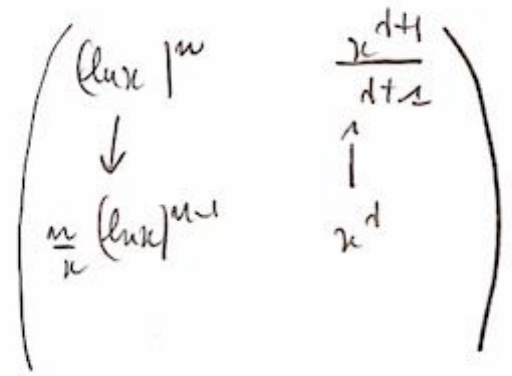 (ln x)^n x^{α+1}/α+1
↓ ↑
n/x (ln x)^{n-1} x^α